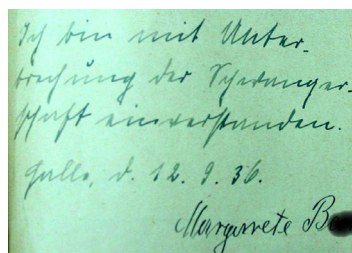 Ich bin mit Unter-
brechung der Schwanger-
schaft einverstanden.
Halle, d. 12. 9. 36.
Margarete